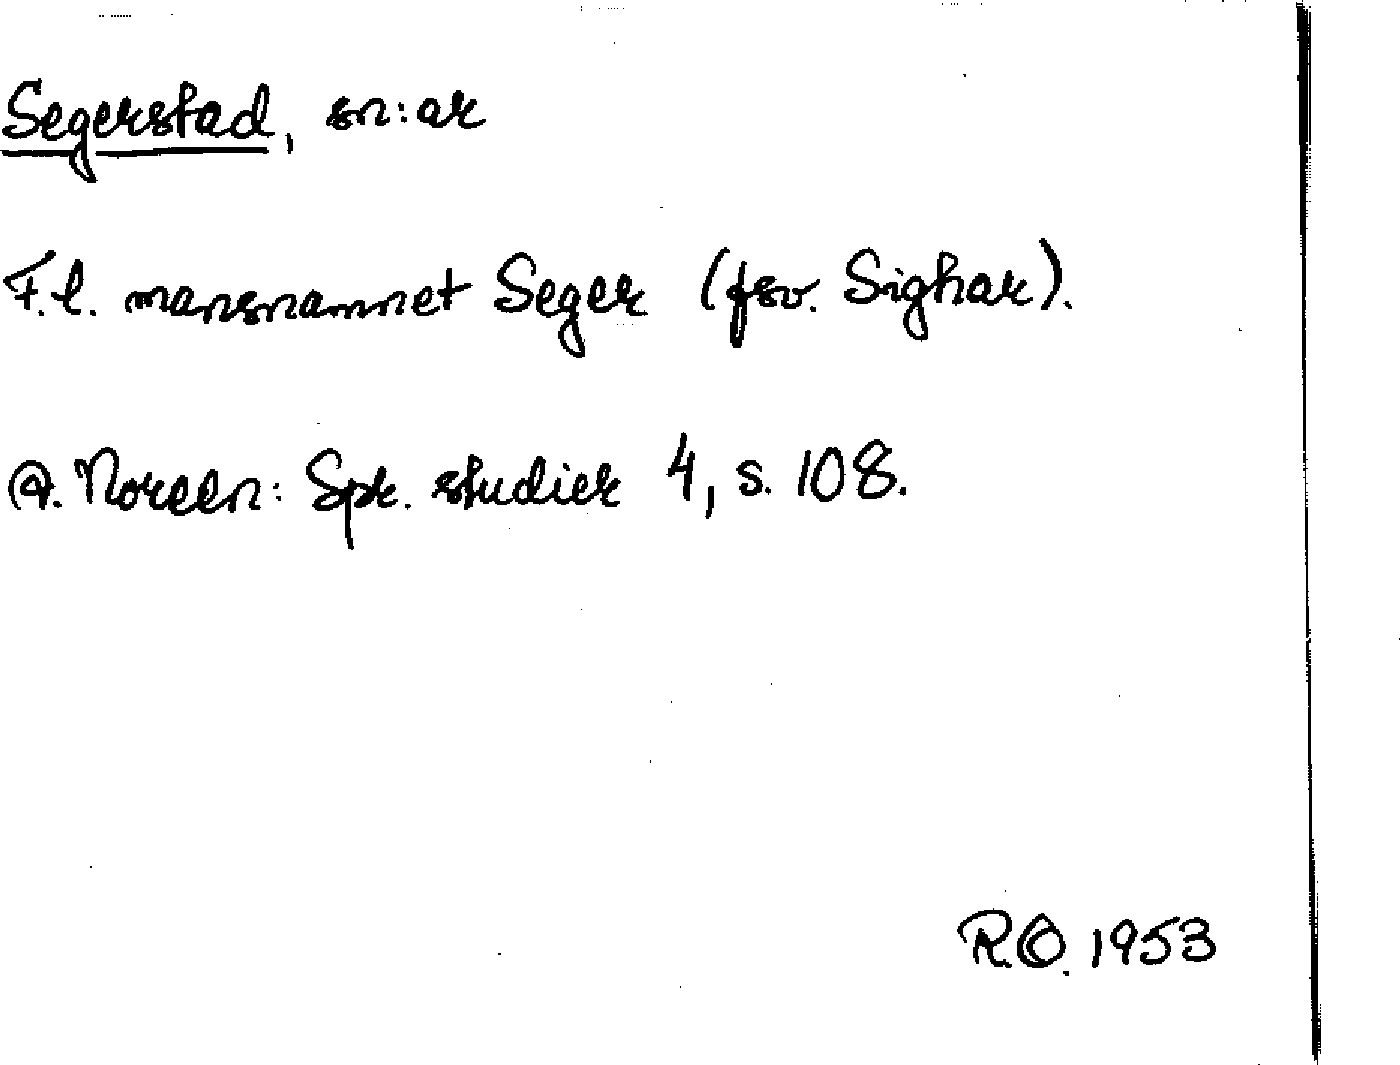 Segerstad, sn:ar
F.l. mansnamnet Seger (fsv. Sighar).
A. Noreen: Spr. studier 4, s. 108.
R.O. 1953